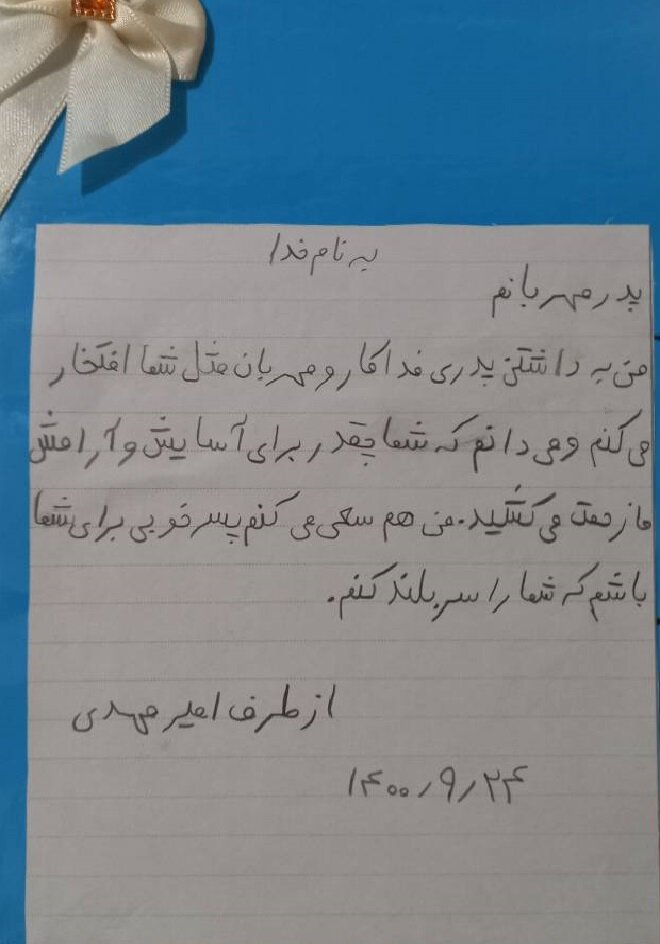 به نام خدا
پدر مهربانم
من به داشتن پدری فداکار و مهربان مثل شما افتخار
می کنم و می دانم که شما چقدر برای آسایش و آرامش
ما زحمت می کشید. من هم سعی می کنم پسر خوبی برای شما
باشم که شما را سربلند کنم.
از طرف امیر مهدی
۱۴۰۰٫۹٫۲۴